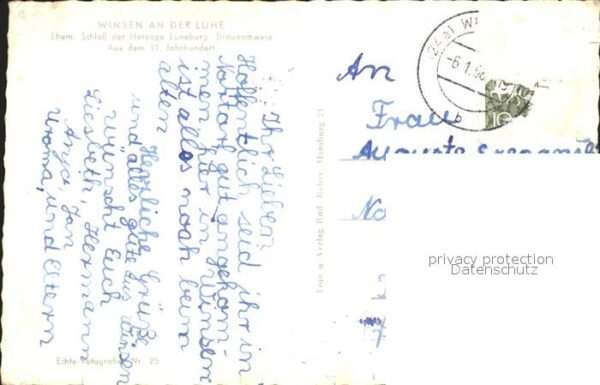 WINSEN AN DER LUHE
Ehem. Schloß der Herzöge Lüneburg-Braunschweig
Aus dem 11. Jahrhundert
Ihr Lieben,
Hoffentlich seid ihr in
Nottorf gut angekom-
men, hier in Winsen
ist alles noch beim
alten
Herzliche Grüße
und alles gute aus Winsen
wünscht Euch
Liesbeth, Hermann
Anja, Jan
Uroma, und Eltern
Echte Fotografie Nr 25
Foto u. Verlag Rud. Reher, Hamburg 21
(24a) WI
-8.1.
10
An
Frau
Auguste
No
privacy protection
Datenschutz